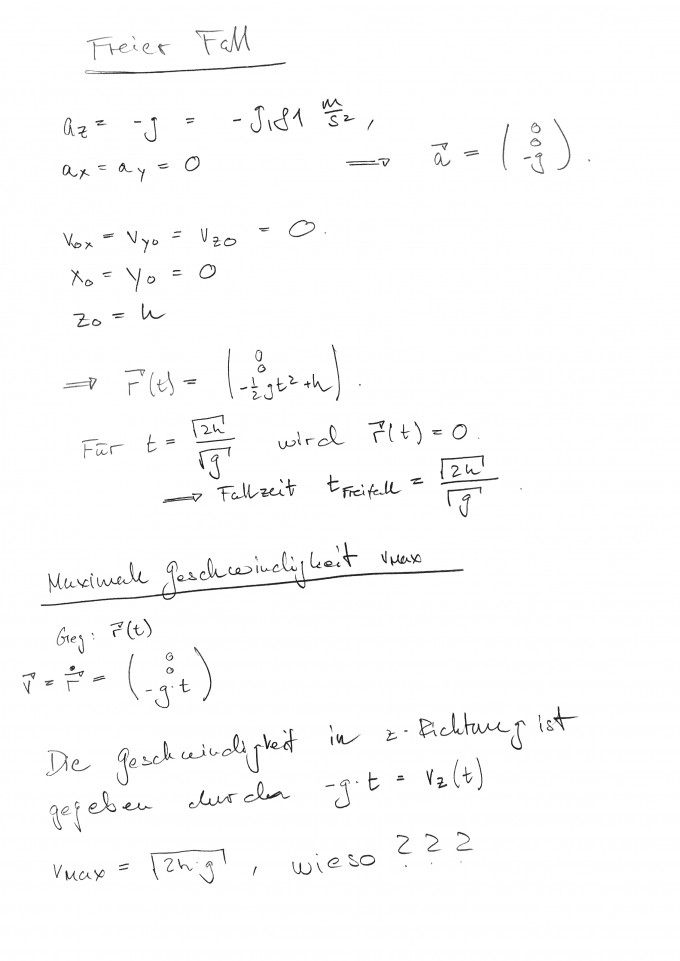 Freier Fall
a_z = -g = -9,81 m/s²,
a_x = a_y = 0 ⟹ a⃗ = (0 0 -g).
v_0x = v_y0 = v_z0 = 0.
x_0 = y_0 = 0
z_0 = h
⟹ r⃗(t) = (0 0 -½gt²+h).
Für t = √2h/√g wird r⃗(t) = 0.
⟹ Fallzeit t_Freifall = √2h/√g.
Maximale Geschwindigkeit v_max
Geg: r⃗(t)
v⃗ = ṙ⃗ = (0 0 -g·t)
Die Geschwindigkeit in z-Richtung ist
gegeben durch -g·t = v_z(t)
v_max = √2h·g, wieso ???